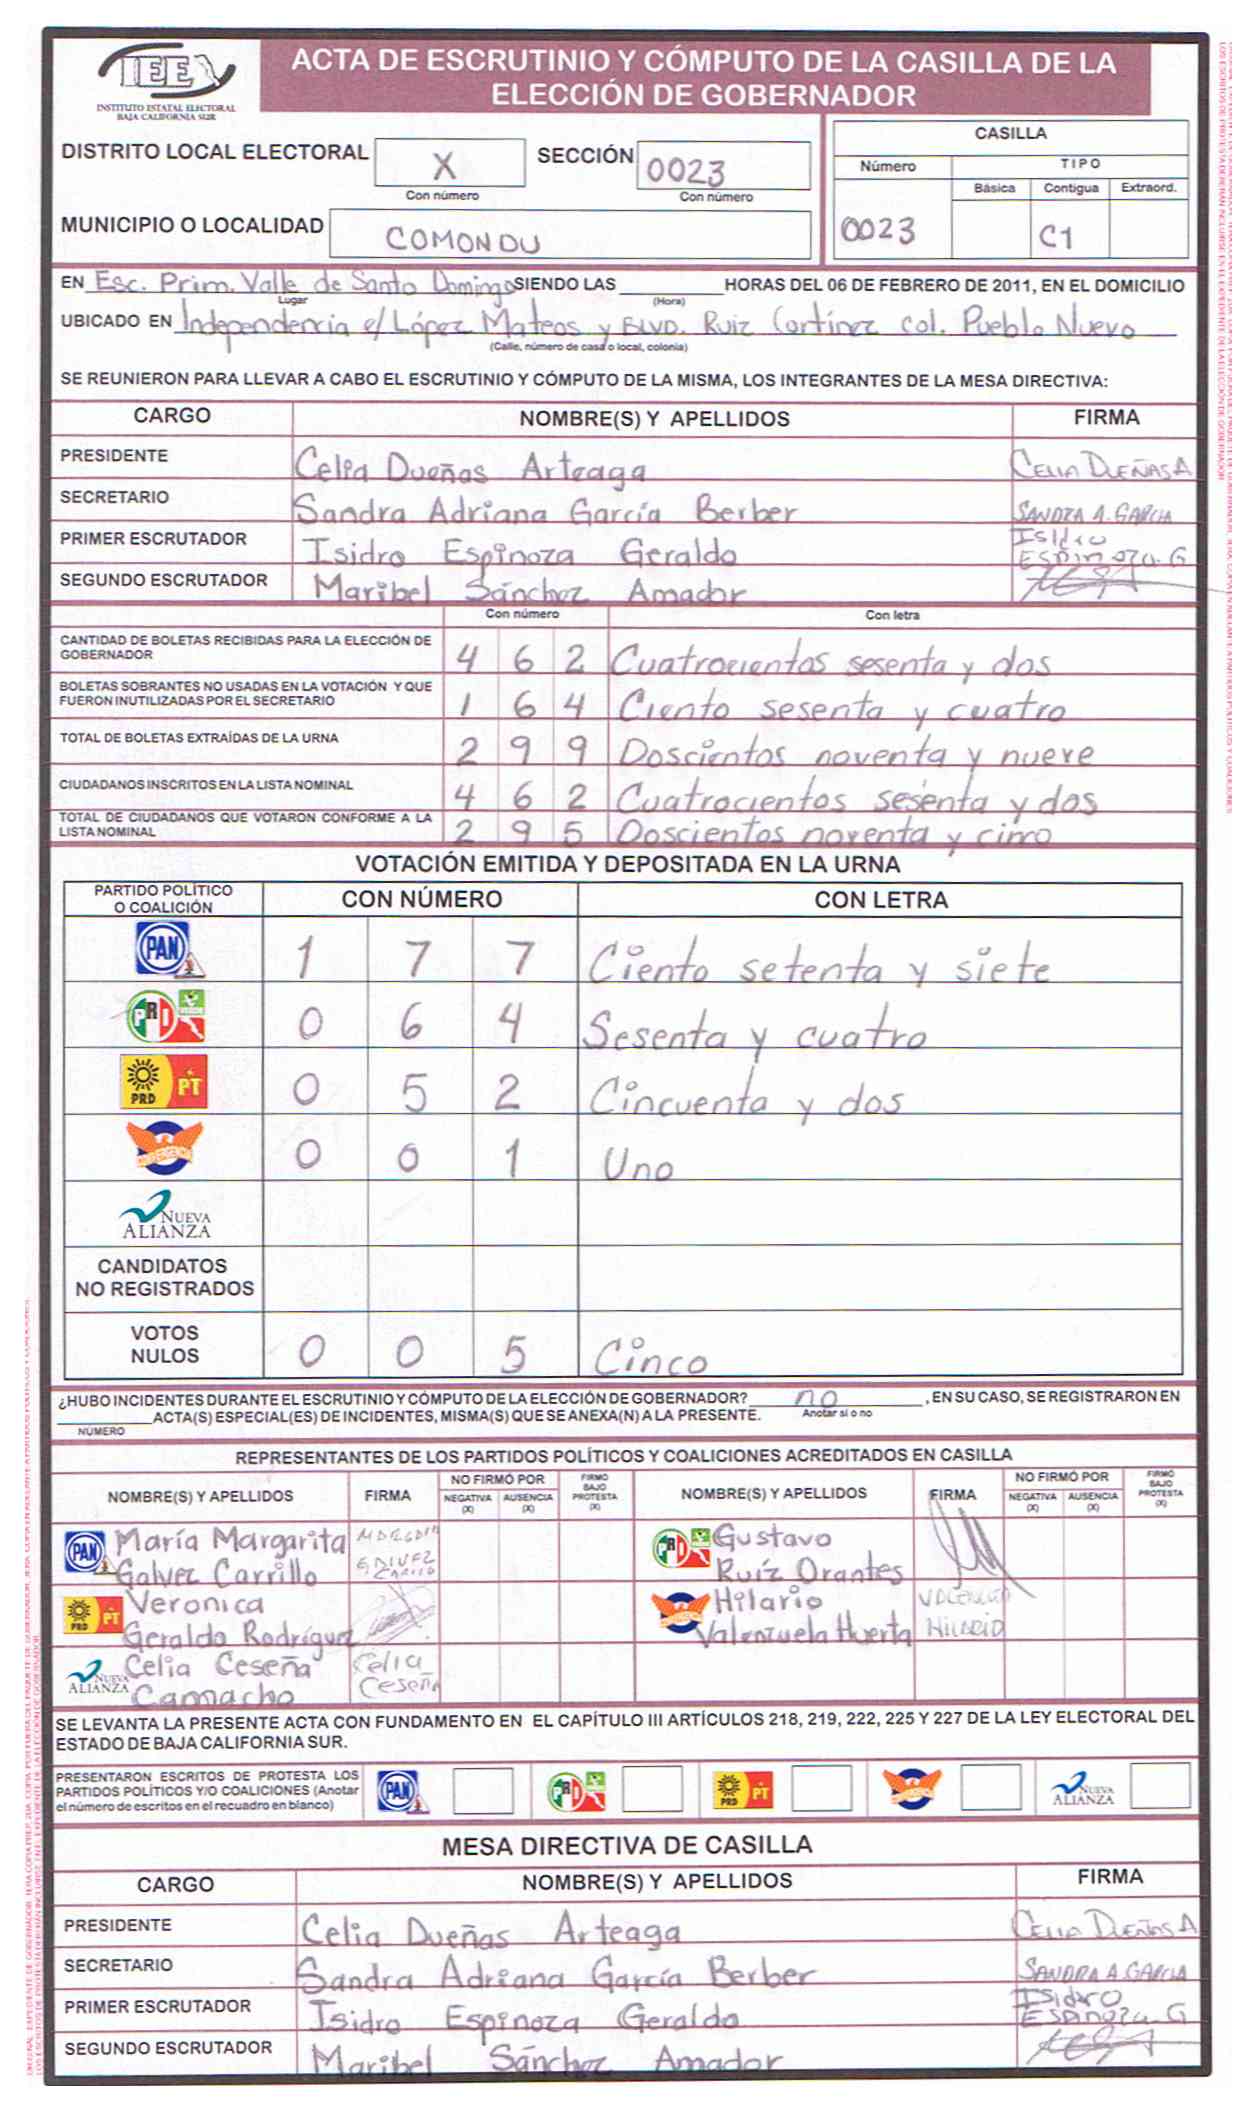 IEE
INSTITUTO ESTATAL ELECTORAL
BAJA CALIFORNIA SUR
ACTA DE ESCRUTINIO Y CÓMPUTO DE LA CASILLA DE LA
ELECCIÓN DE GOBERNADOR
DISTRITO LOCAL ELECTORAL X SECCIÓN 0023
Con número Con número
MUNICIPIO O LOCALIDAD COMONDU
CASILLA
Número TIPO
Básica Contigua Extraord.
0023 C1
EN Esc. Prim. Valle de Santo Domingo SIENDO LAS HORAS DEL 06 DE FEBRERO DE 2011, EN EL DOMICILIO
Lugar (Hora)
UBICADO EN Independencia e/ López Mateos y BLVD. Ruiz Cortínez col. Pueblo Nuevo
(Calle, número de casa o local, colonia)
SE REUNIERON PARA LLEVAR A CABO EL ESCRUTINIO Y CÓMPUTO DE LA MISMA, LOS INTEGRANTES DE LA MESA DIRECTIVA:
CARGO NOMBRE(S) Y APELLIDOS FIRMA
PRESIDENTE Celia Dueñas Arteaga CELIA DUEÑAS A
SECRETARIO Sandra Adriana García Berber SANDRA A. GARCIA
PRIMER ESCRUTADOR Isidro Espinoza Geraldo ISIDRO ESPINOZA. G
SEGUNDO ESCRUTADOR Maribel Sánchez Amador
Con número Con letra
CANTIDAD DE BOLETAS RECIBIDAS PARA LA ELECCIÓN DE
GOBERNADOR 4 6 2 Cuatrocientos sesenta y dos
BOLETAS SOBRANTES NO USADAS EN LA VOTACIÓN Y QUE
FUERON INUTILIZADAS POR EL SECRETARIO 1 6 4 Ciento sesenta y cuatro
TOTAL DE BOLETAS EXTRAÍDAS DE LA URNA 2 9 9 Doscientos noventa y nueve
CIUDADANOS INSCRITOS EN LA LISTA NOMINAL 4 6 2 Cuatrocientos sesenta y dos
TOTAL DE CIUDADANOS QUE VOTARON CONFORME A LA
LISTA NOMINAL 2 9 5 Doscientos noventa y cinco
VOTACIÓN EMITIDA Y DEPOSITADA EN LA URNA
PARTIDO POLÍTICO
O COALICIÓN CON NÚMERO CON LETRA
PAN 1 7 7 Ciento setenta y siete
PRI 0 6 4 Sesenta y cuatro
PRD PT 0 5 2 Cincuenta y dos
CONVERGENCIA 0 0 1 Uno
NUEVA
ALIANZA
CANDIDATOS
NO REGISTRADOS
VOTOS
NULOS 0 0 5 Cinco
¿HUBO INCIDENTES DURANTE EL ESCRUTINIO Y CÓMPUTO DE LA ELECCIÓN DE GOBERNADOR? no , EN SU CASO, SE REGISTRARON EN
ACTA(S) ESPECIAL(ES) DE INCIDENTES, MISMA(S) QUE SE ANEXA(N) A LA PRESENTE. Anotar si o no
NÚMERO
REPRESENTANTES DE LOS PARTIDOS POLÍTICOS Y COALICIONES ACREDITADOS EN CASILLA
NOMBRE(S) Y APELLIDOS FIRMA NO FIRMÓ POR NEGATIVA (X) AUSENCIA (X) FIRMÓ BAJO PROTESTA (X) NOMBRE(S) Y APELLIDOS FIRMA NO FIRMÓ POR NEGATIVA (X) AUSENCIA (X) FIRMÓ BAJO PROTESTA (X)
PAN María Margarita PRI Gustavo
Galvez Carrillo Ruíz Orantes
PRD PT Veronica Hilario
Geraldo Rodríguez Valenzuela Huerta
NUEVA ALIANZA Celia Ceseña Celia
Camacho Ceseña
SE LEVANTA LA PRESENTE ACTA CON FUNDAMENTO EN EL CAPÍTULO III ARTÍCULOS 218, 219, 222, 225 Y 227 DE LA LEY ELECTORAL DEL
ESTADO DE BAJA CALIFORNIA SUR.
PRESENTARON ESCRITOS DE PROTESTA LOS
PARTIDOS POLÍTICOS Y/O COALICIONES (Anotar
el número de escritos en el recuadro en blanco) PAN PRI PRD PT NUEVA ALIANZA
MESA DIRECTIVA DE CASILLA
CARGO NOMBRE(S) Y APELLIDOS FIRMA
PRESIDENTE Celia Dueñas Arteaga CELIA DUEÑAS A
SECRETARIO Sandra Adriana García Berber SANDRA A. GARCIA
PRIMER ESCRUTADOR Isidro Espinoza Geraldo ISIDRO ESPINOZA. G
SEGUNDO ESCRUTADOR Maribel Sánchez Amador